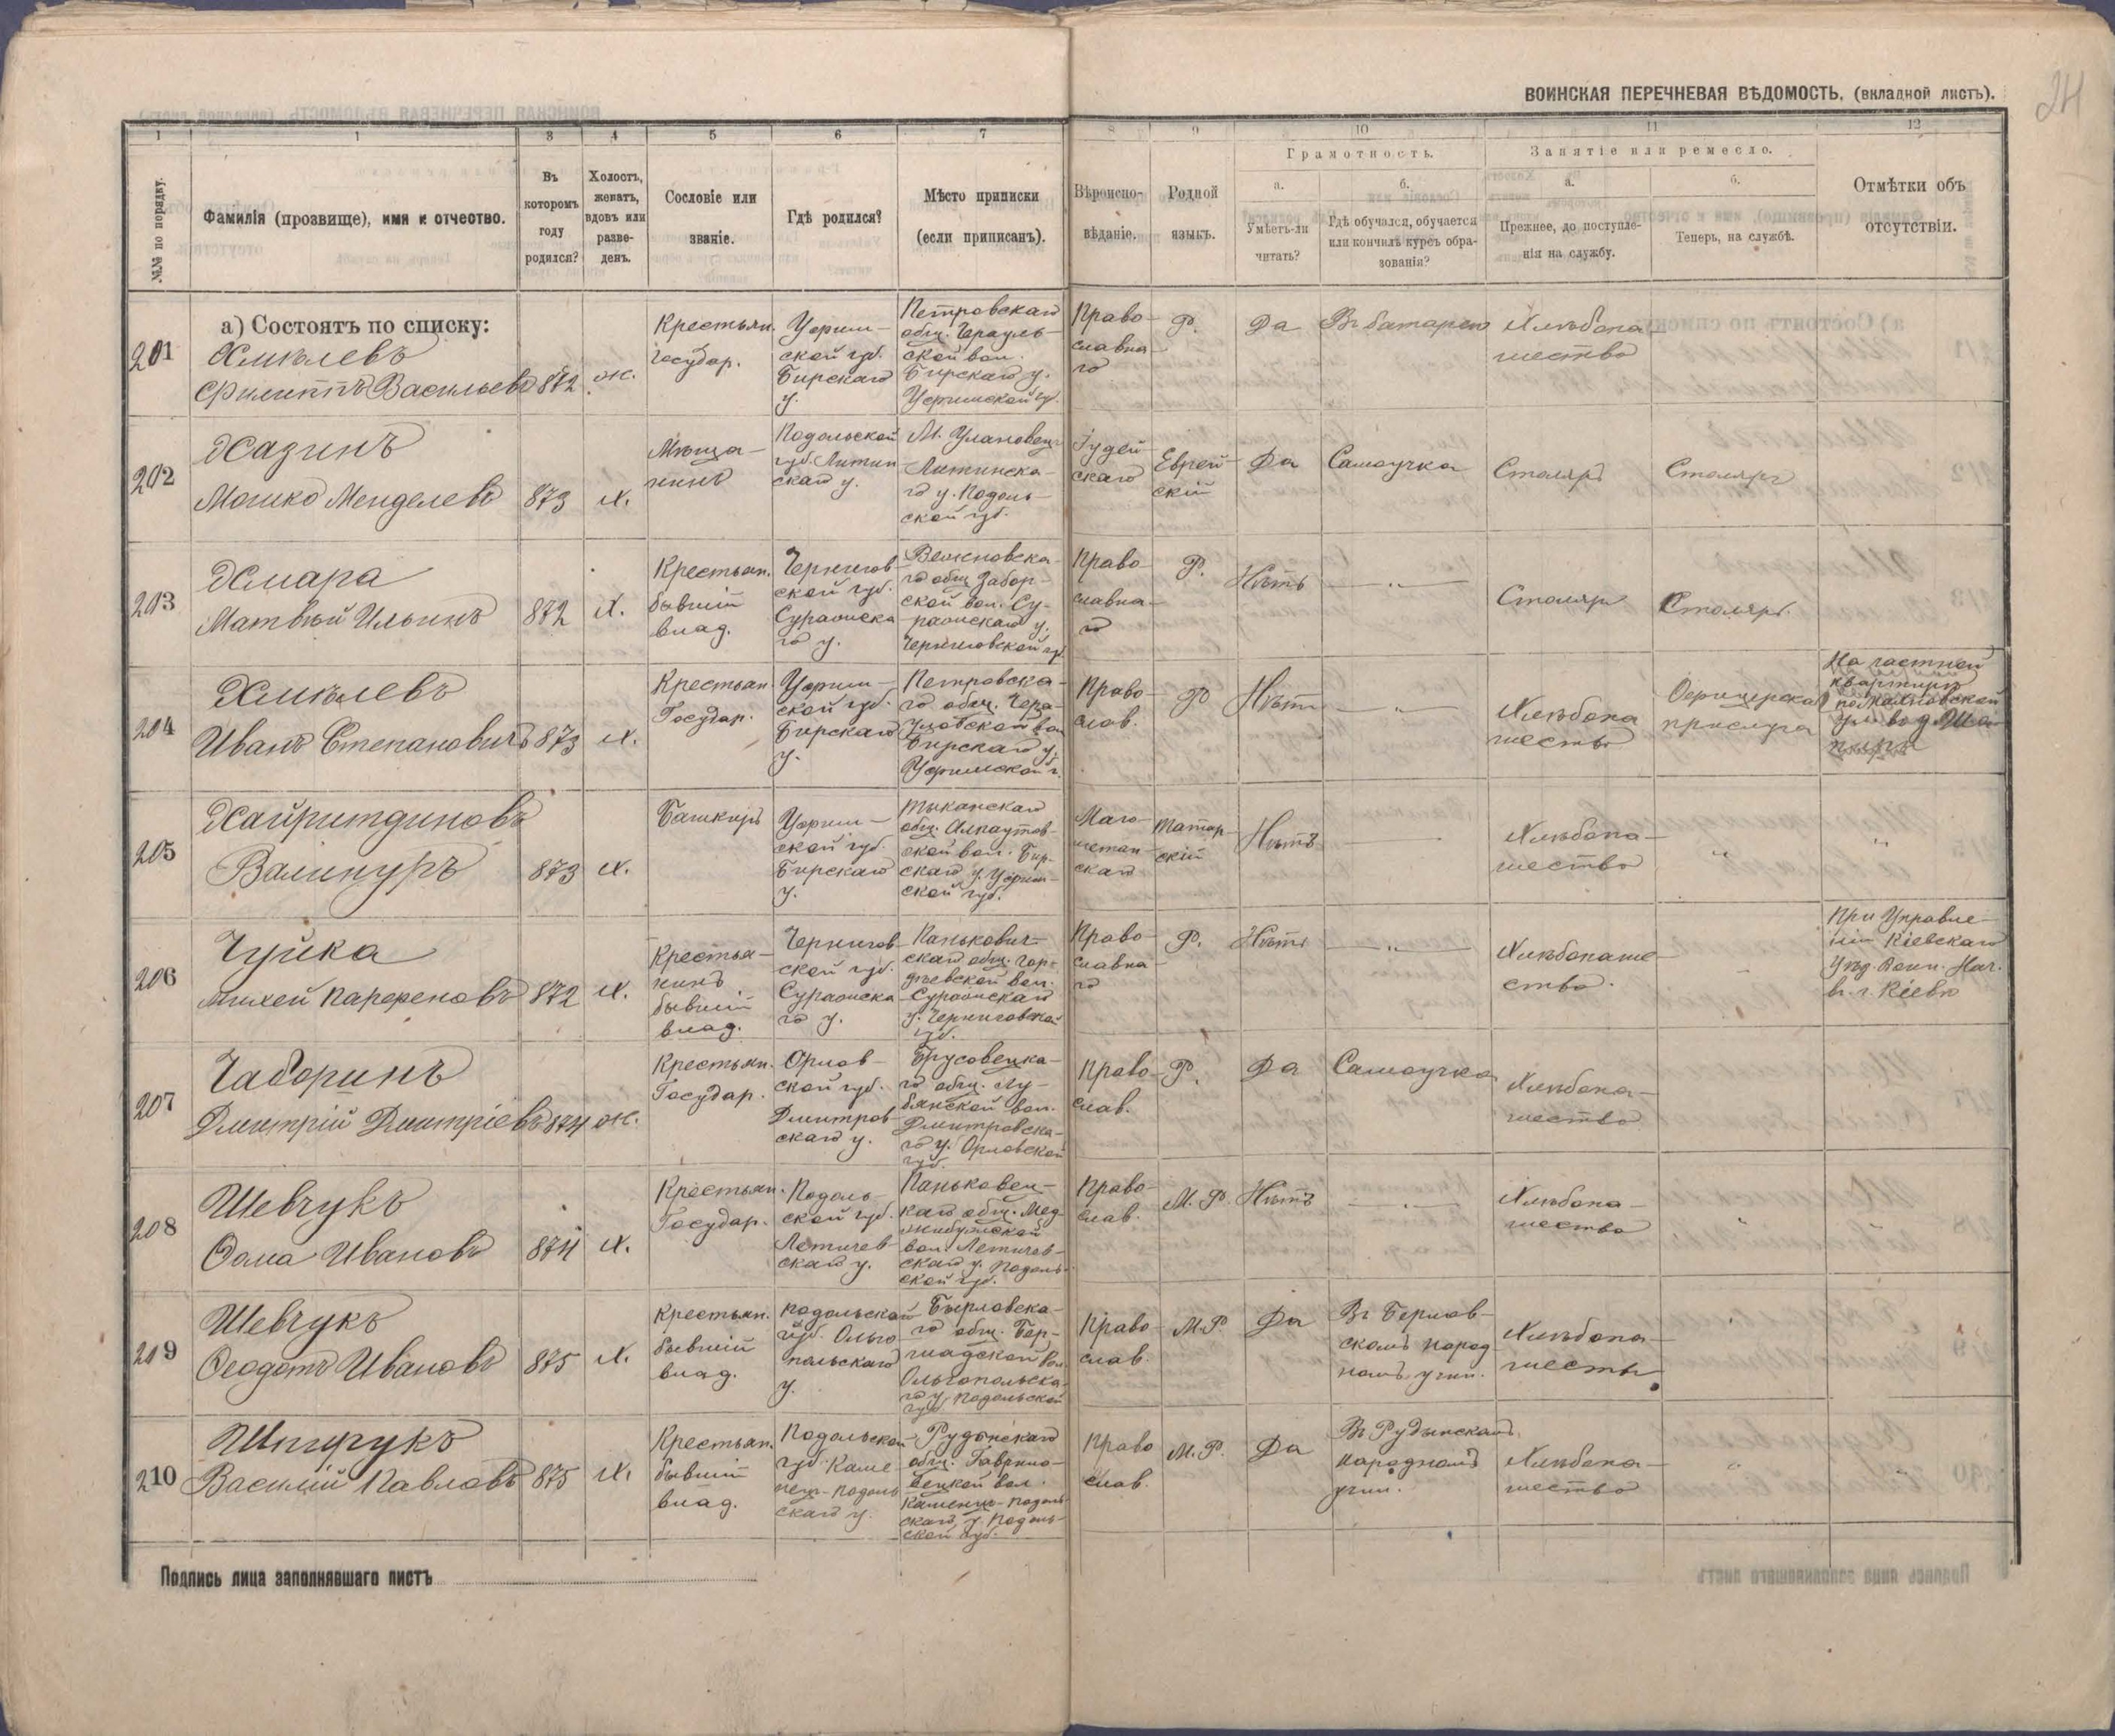 ВОИНСКАЯ ПЕРЕЧНЕВАЯ ВѢДОМОСТЬ, (вкладной листъ).
24
1 1 3 4 5 6 7 8 9 10 11 12
№№ по порядку.
Фамилія (прозвище), имя и отчество.
Въ которомъ году родился?
Холостъ, женатъ, вдовъ или разве-денъ.
Сословіе или званіе.
Гдѣ родился?
Мѣсто приписки (если приписанъ).
Вѣроиспо-вѣданіе.
Родной языкъ.
Грамотность.
а.
Умѣетъ-ли читать?
б.
Гдѣ обучался, обучается или кончилъ курсъ обра-зованія?
Занятіе или ремесло.
а.
Прежнее, до поступле-нія на службу.
б.
Теперь, на службѣ.
Отмѣтки объ отсутствіи.
а) Состоятъ по списку:
201
Хмѣлевъ
Филиппъ Васильевъ
872
ж.
Крестьян.
Государ.
Уфим-
ской губ.
Бирскаго
у.
Петровскаго
общ.
ской вол.
Бирскаго у.
Уфимской гу.
Право-
славна-
го
Р.
Да
Въ батарею
Хлѣбопа-
шество
202
Хазинъ
Мошко Менделевъ
873
х.
Мѣща-
нинъ
Подольской
губ. Литин
скаго у.
М. Улановецъ
Литинска-
го у. Подоль-
ской губ.
Іудей
скаго
Еврей-
скій
Да
Самоучка
Столяръ
Столяръ
203
Хмара
Матвѣй Ильинъ
872
х.
Крестьян.
бывшій
влад.
Чернигов-
ской губ.
Суражска
го у.
го общ.
ской вол. Су-
ражскаго у.
Черниговской гу.
Право-
славна-
го
Р.
Нѣтъ
— „ —
Столяръ
Столяръ.
204
Хмѣлевъ
Иванъ Степановичъ
873
х.
Крестьян.
Государ.
Уфим-
ской губ.
Бирскаго
у.
Петровска-
го общ. Чера-
Бирскаго у.
Уфимской г.
Право-
слав.
Р
Нѣтъ
— „ —
Хлѣбопа
шество
Офицерская
прислуга
На частной
квартирѣ
205
Хайритдиновъ
Валинуръ
873
х.
Башкиръ
Уфим-
ской губ.
Бирскаго
у.
общ.
ской вол. Бир-
скаго у. Уфим-
ской губ.
Маго-
метан-
скаго
Татар-
скій
Нѣтъ
—
Хлѣбопа-
шество
„
„
206
Чуйка
Михей Парфеновъ
872
х.
Крестья-
нинъ
бывшій
влад.
Чернигов-
ской губ.
Суражска
го у.
Панькович-
скаго общ. Гор-
дѣевской вол.
Суражскаго
у. Черниговской
губ.
Право-
славна-
го
Р.
Нѣтъ
— „ —
Хлѣбопаше-
ство.
При Управле-
ніи Кіевскаго
Уѣзд. Воин. Нач.
въ г. Кіевѣ
207
Чаборинъ
Дмитрій Дмитріевъ
874
ж.
Крестьян.
Государ.
Орлов-
ской губ.
Дмитров
скаго у.
Брусовецка-
го общ. Лу-
бянской вол.
Дмитровска-
го у. Орловской
губ.
Право-
слав.
Р.
Да
Самоучка
Хлѣбопа-
шество
208
Шевчукъ
Ѳома Ивановъ
874
х.
Крестьян.
Государ.
Подоль-
ской губ.
Летичев
скаго у.
Паньковец-
каго общ. Мед-
жибужской
вол. Летичев-
скаго у. Подоль-
ской губ.
Право-
слав.
М. Р.
Нѣтъ
— „ —
Хлѣбопа-
шество
„
209
Шевчукъ
Ѳеодотъ Ивановъ
875
х.
Крестьян.
бывшій
влад.
Подольской
губ. Ольго
польскаго
у.
Бырловска-
го общ. Бер-
шадской вол.
Ольгопольска-
го у. Подольской
губ.
Право-
слав.
М. Р.
Да
Въ Берлов-
скомъ народ-
номъ учил.
Хлѣбопа-
шество
210
Василій Павловъ
875
х.
Крестьян.
бывшій
влад.
Подольской
губ. Каме
нец-Подоль
скаго у.
Рудынскаго
общ. Гаврило-
вецкой вол.
Каменец-Подоль-
скаго у. Подоль-
ской губ.
Право
слав.
М. Р.
Да
Въ Рудынскомъ
народномъ
учил.
Хлѣбопа-
шество
„
„
Подпись лица заполнявшаго листъ